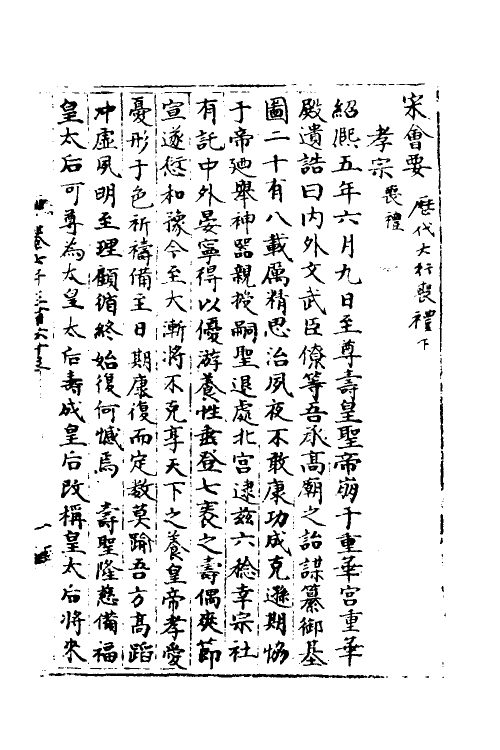 宋會要 歷代大行喪禮下
孝宗喪禮
紹熙五年六月九日至尊壽皇聖帝崩于重華宮重華
殿遺誥曰內外文武臣僚等吾承高廟之詒謀纂御基
圖二十有八載厲精思治夙夜不敢康功成克遜期恊
于帝廸舉神器親授嗣聖退處北宮逮茲六稔幸宗社
有託中外晏寧得以優游養性垂登七袠之壽偶爽節
宣遂愆和豫今至大漸將不克享天下之養皇帝孝愛
憂形于色祈禱備至日期康復而定数莫踰吾方高蹈
冲虛夙明至理顧循終始復何憾焉 壽聖隆慈備福
皇太后可尊為太皇太后壽成皇后改稱皇太后將來
卷七千三百六十三
一